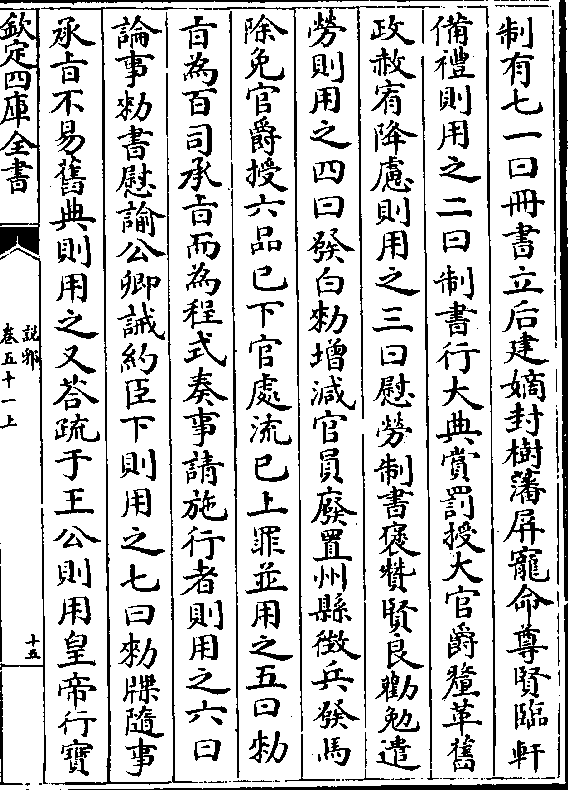 制有七一曰冊書立后建嫡封樹藩屏寵命尊賢臨軒
備禮則用之二曰制書行大典賞罰授大官爵釐革舊
政赦宥降慮則用之三曰慰勞制書褒贊賢良勸勉遣
勞則用之四曰發白勑增減官員廢置州縣徴兵發馬
除免官爵授六品已下官處流已上罪並用之五曰勑
㫖為百司承㫖而為程式奏事請施行者則用之六曰
論事勑書慰諭公卿誡約臣下則用之七曰勑牒隨事
承㫖不易舊典則用之又荅疏于王公則用皇帝行寳
欽定四庫全書
說郛
卷五十一上
十五